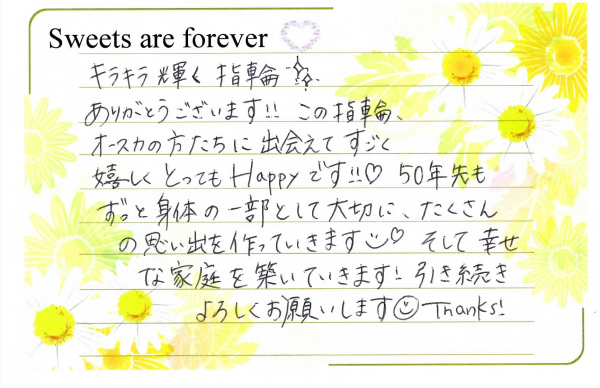 Sweets are forever
キラキラ輝く指輪
ありがとうございます!! この指輪、
オースカの方たちに出会えてすごく
嬉しくとってもHappyです!!♡ 50年先も
ずっと身体の一部として大切に、たくさん
の思い出を作っていきます♡ そして幸せ
な家庭を築いていきます! 引き続き
よろしくお願いします☺ Thanks!